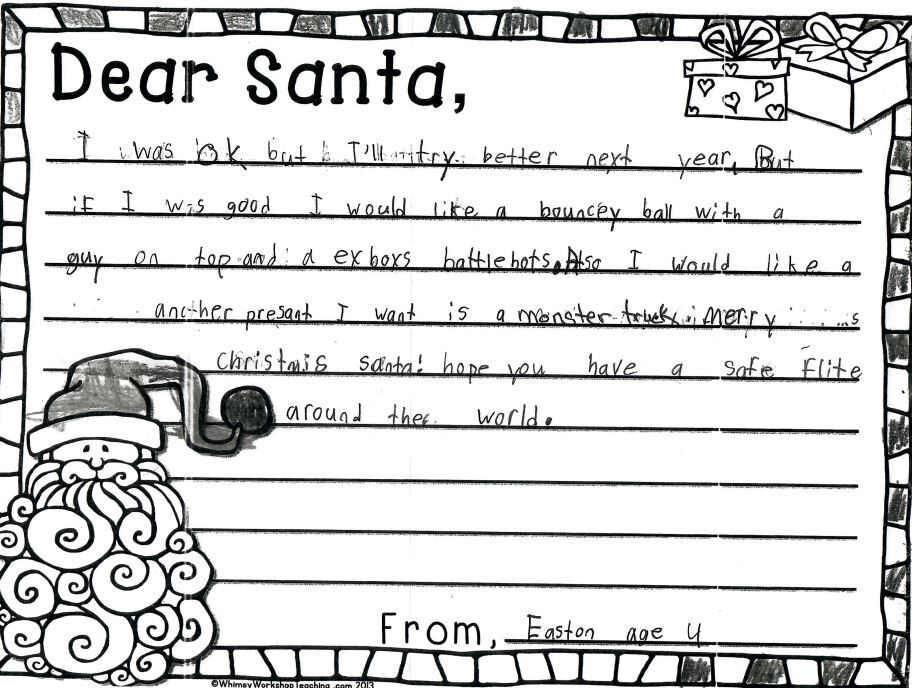 Dear Santa,
I was ok but I'll try better next year, But
if I was good I would like a bouncey ball with a
guy on top and a exboxs battlebots. Also I would like a
another presant I want is a monster truck merry
Christmis santa! hope you have a safe flite
around the world.
From, Easton age 4
©WhimsyWorkshopTeaching.com 2013